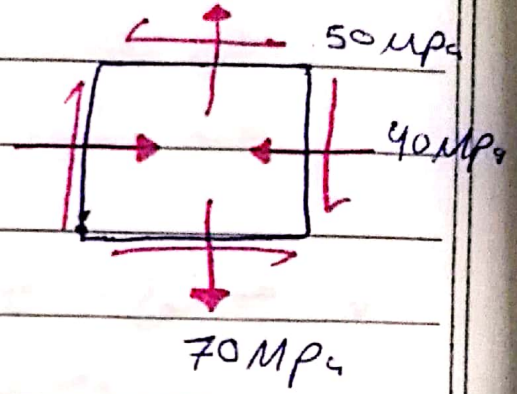 50MPa
40MPa
70MPa